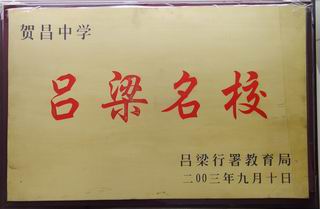 贺昌中学
吕梁名校
吕梁行署教育局
二00三年九月十日